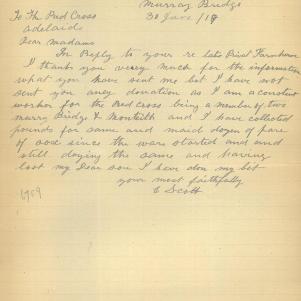 Murray Bridge
To The Red Cross 30 June /18
Adelaide
Dear Madame
In Reply to your re late Privat Farnham
I thank you verey much for the information
what you have sent me but I have not
sent you aney donation as I am a constent
worker for the Red Cross being a member of two
Murry Bridge & Monteith and I have collected
pounds for same and maid dozen of pare
of sox since the ware started and and
still doying the same and having
lost my Dear son I have don my bet
your most faithfully
E Scott
6959